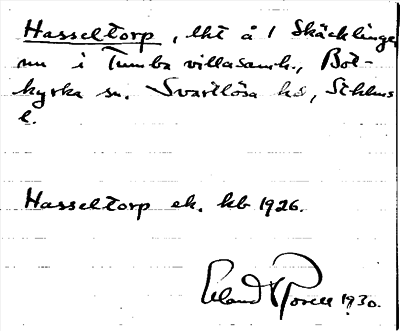 Hasseltorp, lht å 1 Skäcklinge
nu i Tumba villasamh., Bot-
kyrka sn. Svartlösa hd, Sthlms
l.
Hasseltorp ek. kb 1926.
Erland Rosell 1930.